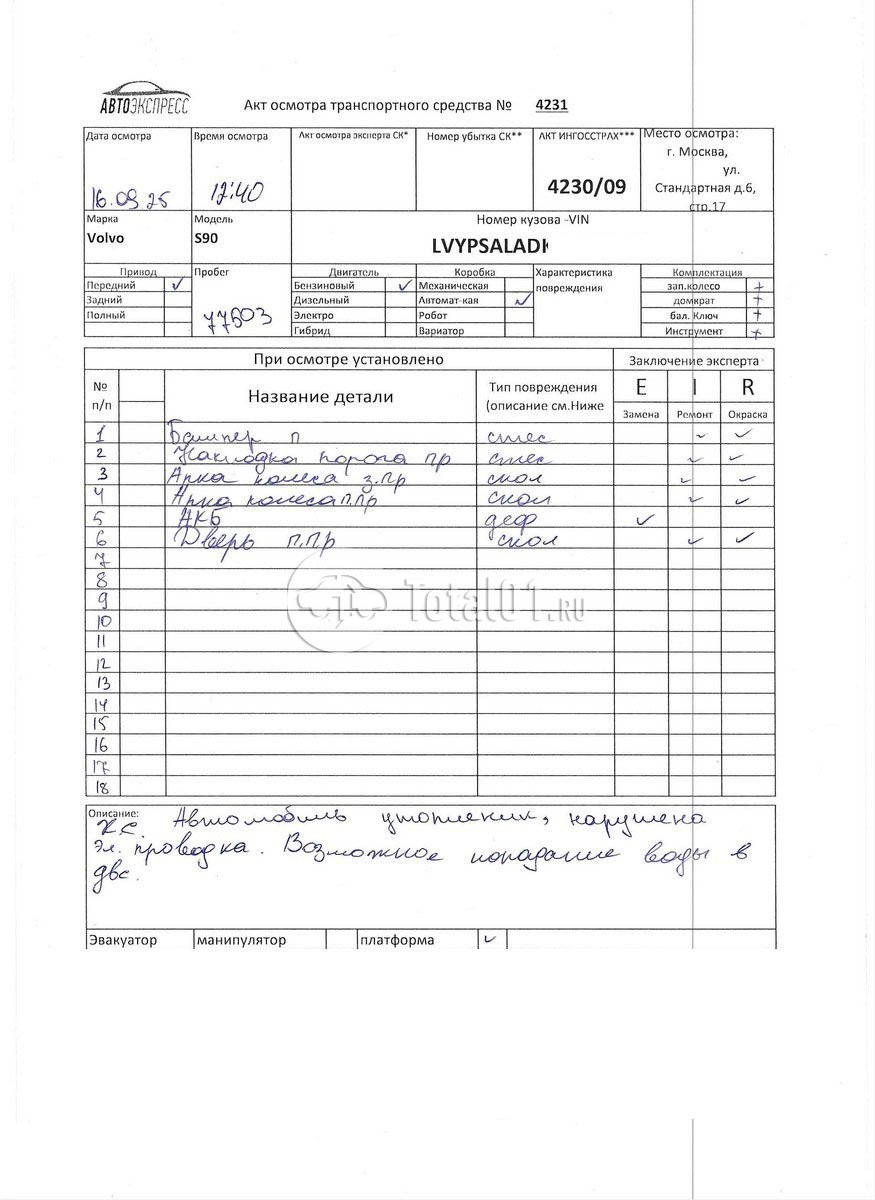 АВТОЭКСПРЕСС
Акт осмотра транспортного средства № 4231
Дата осмотра Время осмотра Акт осмотра эксперта СК* Номер убытка СК** АКТ ИНГОССТРАХ*** Место осмотра:
г. Москва,
ул.
16.09.25 12:40 4230/09 Стандартная д.6,
стр.17
Марка Модель Номер кузова -VIN
Volvo S90 LVYPSALADH
Привод Пробег Двигатель Коробка Характеристика Комплектация
Передний ✓ Бензиновый ✓ Механическая повреждения зап.колесо +
Задний Дизельный Автомат-кая ✓ домкрат +
Полный 77503 Электро Робот бал. Ключ +
Гибрид Вариатор Инструмент +
При осмотре установлено Заключение эксперта
№ п/п Название детали Тип повреждения (описание см.Ниже E I R
Замена Ремонт Окраска
1 Бампер п смес ✓ ✓
2 Накладка порога пр смес ✓ ✓
3 Арка колеса з.пр скол ✓ ✓
4 Арка колеса п.пр скол ✓ ✓
5 АКБ деф ✓
6 Дверь п.пр скол ✓ ✓
7
8
9
Total01.RU
10
11
12
13
14
15
16
17
18
Описание:
К.С. Автомобиль утопленик, нарушена
эл. проводка. Возможное попадание воды в
двс.
Эвакуатор манипулятор платформа ✓